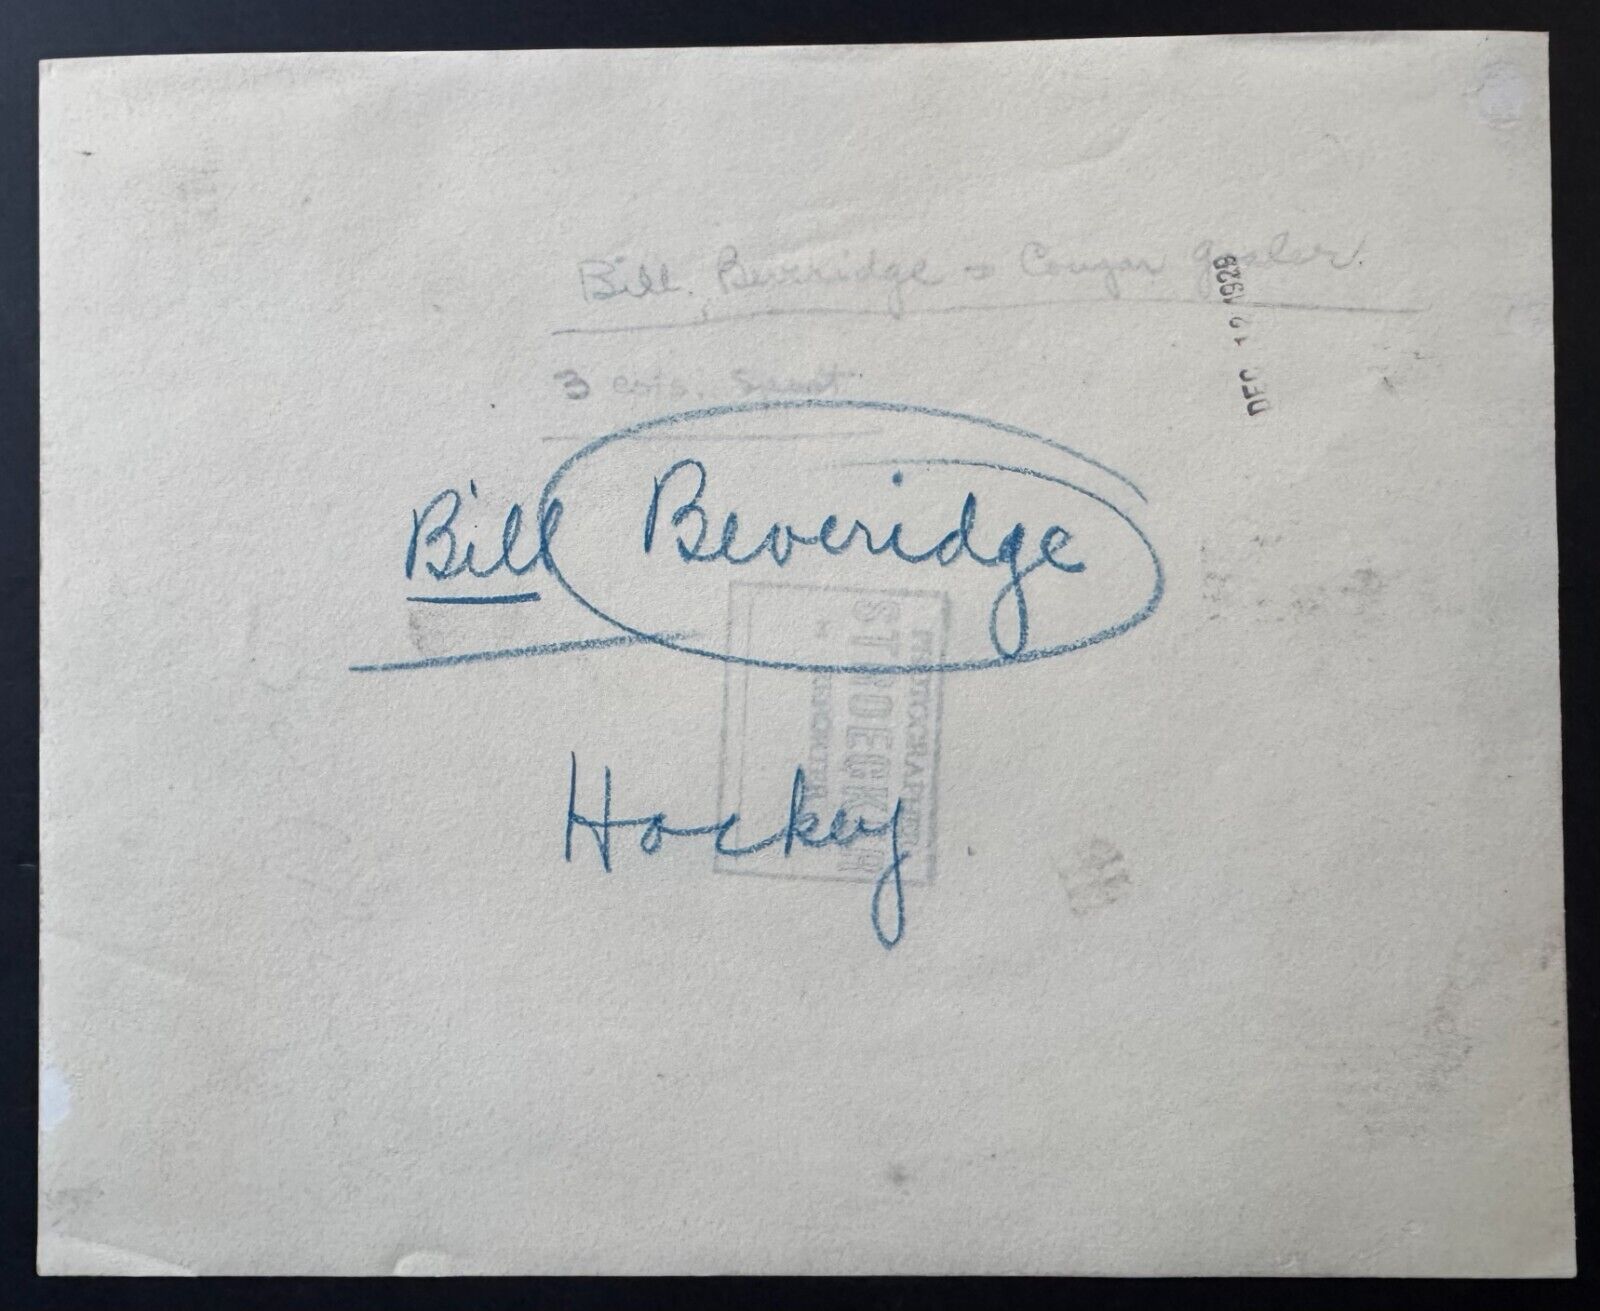 Bill Beveridge - Cougar Goaler.
DEC 12 1929
3 cols.
Bill Beveridge
PHOTOGRAPHED
STROECKER
Hockey